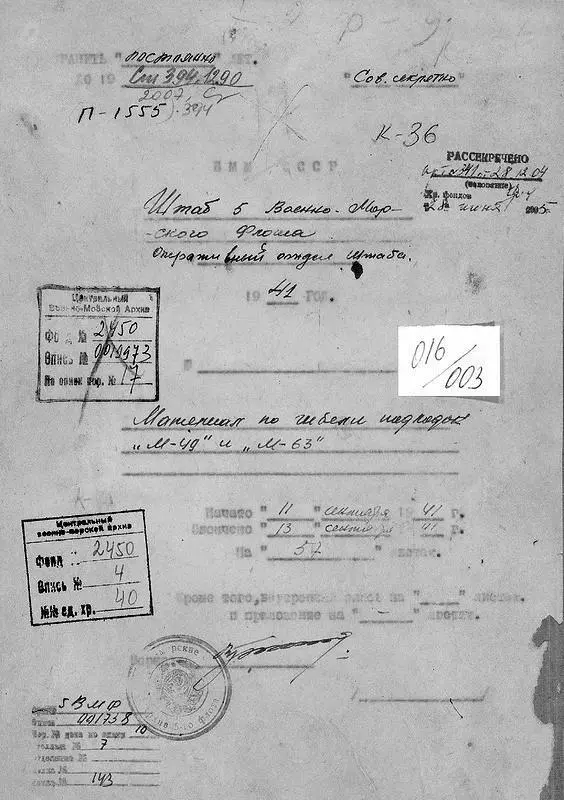 ХРАНИТЬ "постоянно" ЛЕТ.
ДО 19 Ст 394, 1290
2007,
П-1555
"Сов. секретно"
К-36
РАССЕКРЕЧЕНО
28.12.04
Хр. фондов
июня 2005г.
ВМФ СССР
Штаб 5 Военно-Мор-
-ского Флота
Оперативный отдел штаба.
19 41 ГОД.
Центральный
Военно-Морской Архив
Фонд № 2450
Опись № 0019973
По описи пор. № 17
016/003
Материал по гибели подлодок
"М-49" и "М-63"
Начато "11" сентября 1941 г.
Окончено "13" сентября 41 г.
На "57" листах.
Центральный
военно-морской архив
Фонд 2450
Опись № 4
№№ ед. хр. 40
Кроме того, внутренняя опись на " — " листах.
и приложение на " — " листах.
5 ВМФ
Опись 001738
Пор. № дела по описи 10
№ 7
143